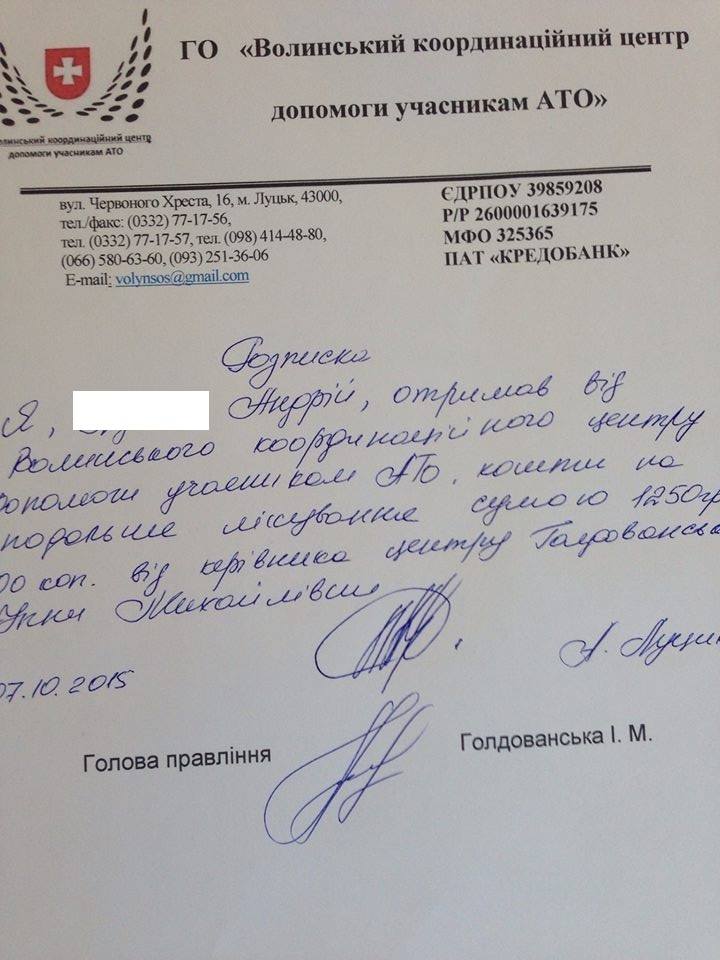 ГО «Волинський координаційний центр
допомоги учасникам АТО»
олинський координаційний центр
допомоги учасникам АТО
вул. Червоного Хреста, 16, м. Луцьк, 43000,
тел./факс: (0332) 77-17-56,
тел. (0332) 77-17-57, тел. (098) 414-48-80,
(066) 580-63-60, (093) 251-36-06
E-mail: volynsos@gmail.com
ЄДРПОУ 39859208
Р/Р 2600001639175
МФО 325365
ПАТ «КРЕДОБАНК»
Розписка
Я, Андрій, отримав від
Волинського координаційного центру
допомоги учасникам АТО, кошти на
подальше лікування сумою 1250гр
00 коп. від керівника центру Голдованськ
Інни Михайлівни
07.10.2015
Голова правління
Голдованська І. М.